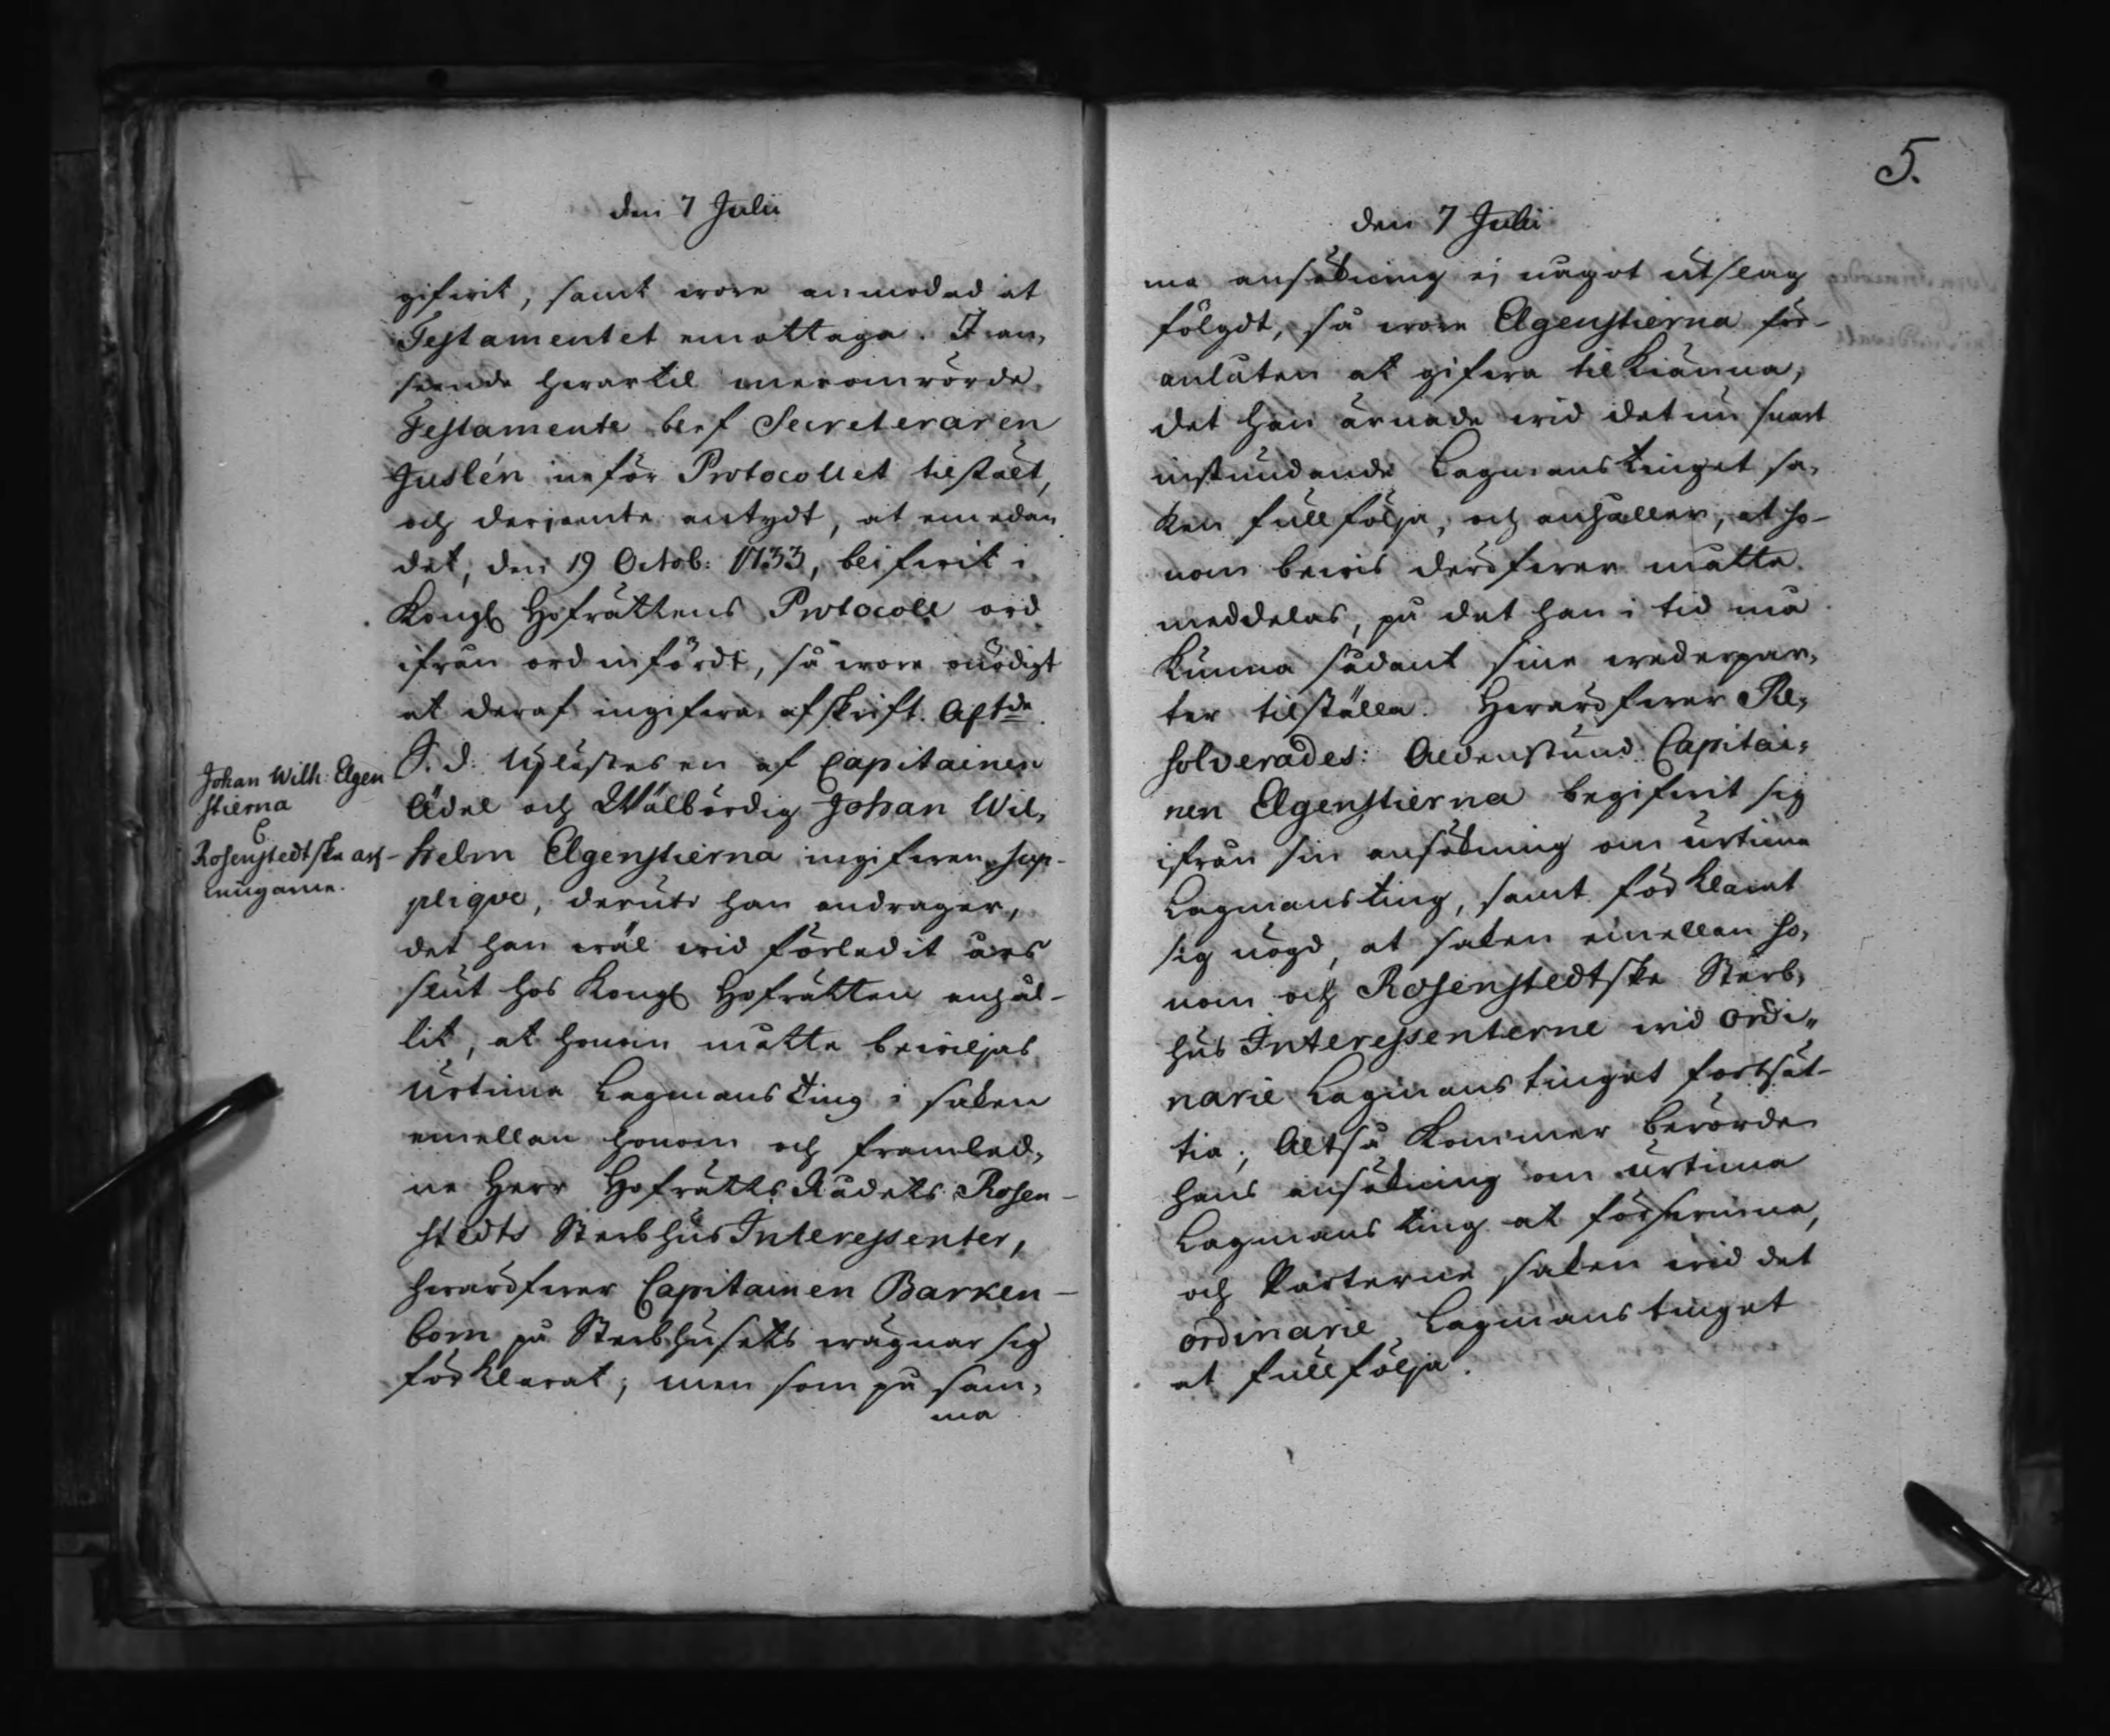 den 7 Julii
gifwit, samt wore anmodad at
Testamentet emottaga. I an,
seende hwartil meromrörde
Testamente blef Secreteraren
Juslén inför Protocollet tilstält,
och derjemte antydt, at emedan
det, den 19 Octob: 1733, blifwit i
Kongl Hofrättens Protocoll ord
ifrån ord infördt, så wore onödigt
at deraf ingifwa afskrift. Aftde.
S. d. Uplästes en af Capitainen
Ädel och Wälbördig Johan Wil,
helm Elgenstierna ingifwen sup-
plique, deruti han andrager,
det han wäl wid förledit års
slut hos Kongl Hofrätten anhål-
lit, at honom måtte bewiljas
Urtima Lagmans ting i saken
emellan honom och framled,
ne Herr Hofrätts Rådets Rosen-
stedts Sterbhus Interessenter,
hwaröfwer Capitainen Barken-
bom på Sterbhusets wägnar sig
förklarat; men som på sam,
ma
Johan Wilh: Elgen
stierna
C.
Rosenstedtska arf-
tingarne.
5.
den 7 Julii
ma ansökning ej något utslag
fölgdt, så wore Elgenstierna för-
anlåten at gifwa tilkiänna,
det han ärnade wid det nu snart
instundande Lagmanstinget sa,
ken fullfölja, och anhåller, at ho-
nom bewis deröfwer måtte
meddelas, på det han i tid må
kunna sådant sine wederpar,
ter tilställa. Hwaröfwer Re,
solverades: Aldenstund Capitai,
nen Elgenstierna begifwit sig
ifrån sin ansökning om urtima
Lagmansting, samt förklarat
sig nögd, at saken emellan ho,
nom och Rosenstedtske Sterb,
hus Interessenterne wid ordi,,
narie Lagmanstinget fortsät-
tia; Altså kommer berörde
hans ansökning om urtima
Lagmans ting at förswinna,
och Parterne saken wid det
ordinarie Lagmanstinget
at fullfölja.